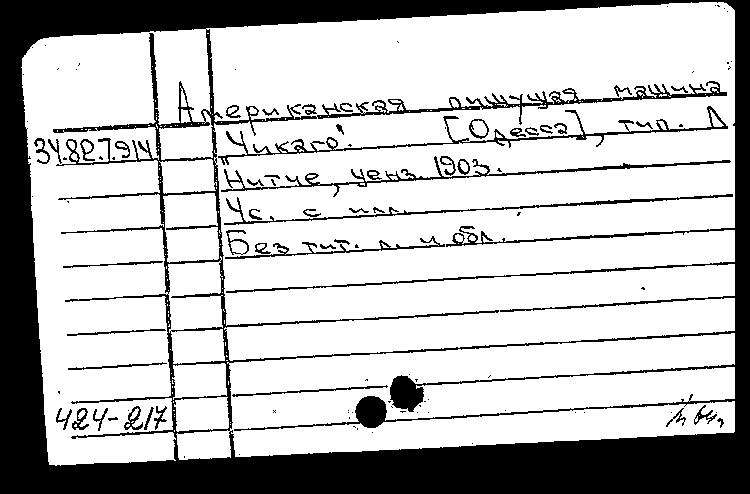 Американская пишущая машина
34.82.7.914 "Чикаго". [Одесса], тип. Л.
Нитче, ценз. 1903.
4с. с илл.
Без тит. л. и обл.
424-217